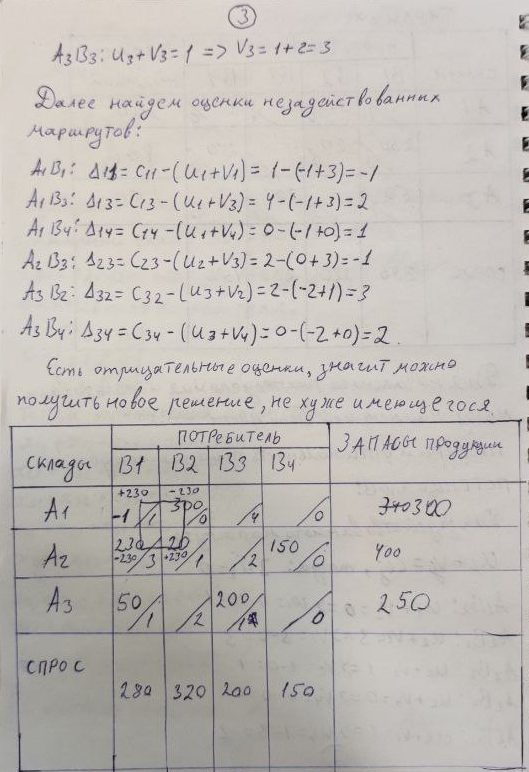 3
A3B3: U3+V3=1 => V3=1+2=3
Далее найдем оценки незадействованных
маршрутов:
A1B1: Δ11=C11-(U1+V1)=1-(-1+3)=-1
A1B3: Δ13=C13-(U1+V3)=4-(-1+3)=2
A1B4: Δ14=C14-(U1+V4)=0-(-1+0)=1
A2B3: Δ23=C23-(U2+V3)=2-(0+3)=-1
A3B2: Δ32=C32-(U3+V2)=2-(-2+1)=3
A3B4: Δ34=C34-(U3+V4)=0-(-2+0)=2.
Есть отрицательные оценки, значит можно
получить новое решение, не хуже имеющегося.
СКЛАДЫ ПОТРЕБИТЕЛЬ ЗАПАСЫ ПРОДУКЦИИ
B1 B2 B3 B4
+230 -230
A1 -1/1 300/0 /4 /0 300
A2 230/3 20/1 /2 150/0 400
-230 +230
A3 50/1 /2 200/1 /0 250
СПРОС
280 320 200 150